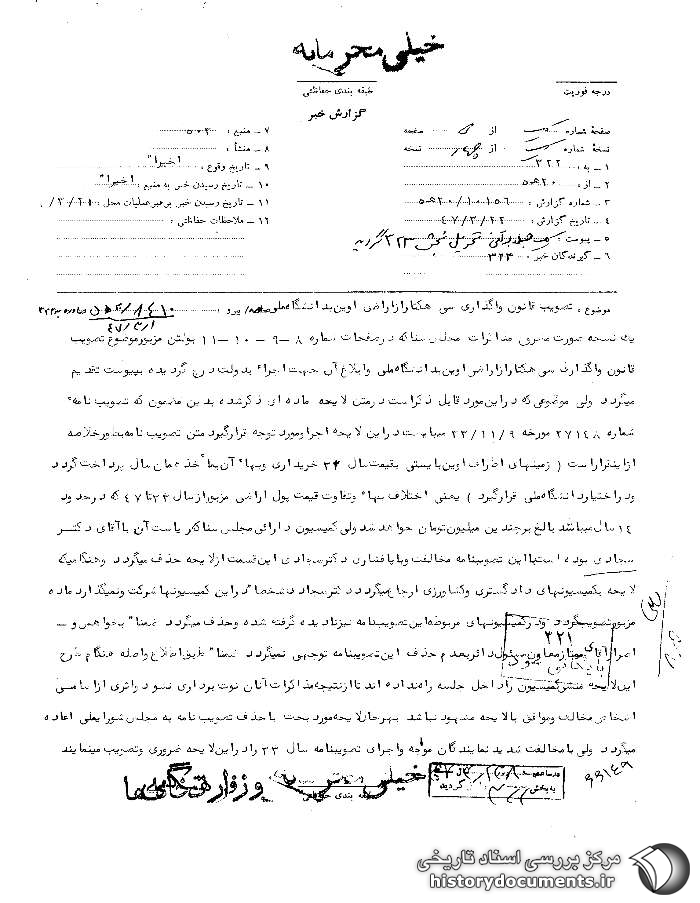 خیلی محرمانه
درجه فوریت
طبقه بندی حفاظتی
گزارش خبر
صفحهٔ شماره یک از ۵ صفحه
نسخهٔ شماره یک از چهار نسخه
۱ – به : ۳۲۲
۲ – از : ۲۰ ه ۵
۳ – شماره گزارش : ۲۰/۱۰۱۵۶ ه ۵
۴ – تاریخ گزارش : ۴۷/۳/۲۲
۵ – پیوست :
۶ – گیرندگان خبر : ۳۲۴
۷ – منبع : ۵۰۳
۸ – منشأ :
۹ – تاریخ وقوع : اخیرا"
۱۰ – تاریخ رسیدن خبر به منبع : اخیرا"
۱۱ – تاریخ رسیدن خبر برهبر عملیات محل :
۱۲ – ملاحظات حفاظتی :
موضوع : تصویب قانون واگذاری سی هکتار از اراضی اوین بدانشگاه ملی
یک نسخه صورت مشروح مذاکرات مجلس سنا که در صفحات شماره ۸ –۹– ۱۰ –۱۱ بولتن مزبور موضوع تصویب
قانون واگذاری سی هکتار از اراضی اوین بدانشگاه ملی و ابلاغ آن جهت اجراء بدولت درج گردیده بپیوست تقدیم
میگردد ولی موضوعی که در این مورد قابل ذکر است در متن لایحه ماده ای ذکر شده بدین مضمون که تصویب نامه
شماره ۲۷۱۴۸ مورخه ۲۳/۱۱/۹ میبایست در این لایحه اجرا و مورد توجه قرار گیرد متن تصویب نامه بطور خلاصه
از اینقرار است ( زمینهای اطراف اوین بایستی بقیمت سال ۲۴ خریداری و بهاء آن بمأخذ همان سال پرداخت گردد
و در اختیار دانشگاه ملی قرار گیرد ) یعنی اختلاف بهاء و تفاوت قیمت پول اراضی مزبور از سال ۲۳ تا ۴۷ که در حدود
سال میباشد بالغ بر چندین میلیون تومان خواهد شد ولی کمیسیون دارائی مجلس سنا که ریاست آن با آقای دکتر
سجادی بوده است با این تصویبنامه مخالفت و با پافشاری دکتر سجادی این قسمت از لایحه حذف میگردد و هنگامیکه
لایحه بکمیسیونهای دادگستری و کشاورزی ارجاع میگردد دکتر سجادی شخصا" در این کمیسیونها شرکت و نمیگذارد ماده
مزبور تصویب گردد و در کمیسیونهای مربوطه این تصویب نامه نیز نادیده گرفته شده و حذف میگردد ضمنا" بخواهش و –
اصرار آقای ممتاز معاون مسئول دائر بعدم حذف این تصویبنامه توجهی نمیگردد ضمنا" طبق اطلاع واصله هنگام طرح
این لایحه منشی کمیسیون را داخل جلسه راه نداده اند تا از نتیجه مذاکرات آنان نوت برداری نشود و اثری از اسامی
اشخاص مخالف و موافق با لایحه مشهود نباشد بهرحال لایحه مورد بحث با حذف تصویب نامه به مجلس شورایملی اعاده
میگردد ولی با مخالفت شدید نمایندگان مواجه و اجرای تصویبنامه سال ۲۳ را در این لایحه ضروری و تصویب مینمایند
۳۲۱
بایگانی شود
خیلی محرمانه
طبقه بندی حفاظتی
مرکز بررسی اسناد تاریخی
historydocuments.ir